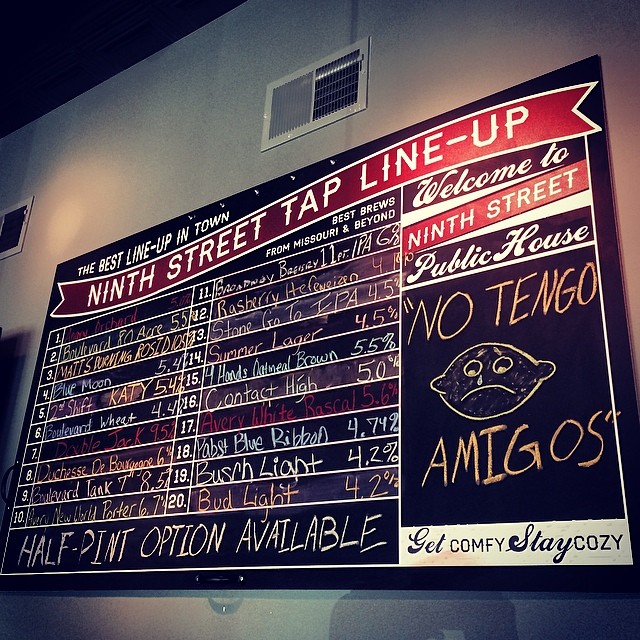 THE BEST LINE-UP IN TOWN
NINTH STREET TAP LINE-UP
BEST BREWS
FROM MISSOURI & BEYOND
1. Orchard 5.0%
2. Boulevard 80 Acre 5.5%
3. MATT'S BURNING ROSIDS 10%
4. Blue Moon 5.4
5. 2nd Shift KATY 5.4%
6. Boulevard Wheat 4.4
7. Double Jack 9.5%
8. Duchesse De Bourgogne 6%
9. Boulevard Tank 7 8.5%
10. Avery New World Porter 6.7%
11. Broadway Brewery 11pt. IPA 6%
12. Rasberry Hefeweizen 4.1%
13. Stone Go To IPA 4.5%
14. Summer Lager 4.5%
15. 4 Hands Oatmeal Brown 5.5%
16. Contact High 5.0%
17. Avery White Rascal 5.6%
18. Pabst Blue Ribbon 4.74%
19. Busch Light 4.2%
20. Bud Light 4.2%
HALF-PINT OPTION AVAILABLE
Welcome to
NINTH STREET
Public House
"NO TENGO
AMIGOS"
Get COMFY Stay COZY